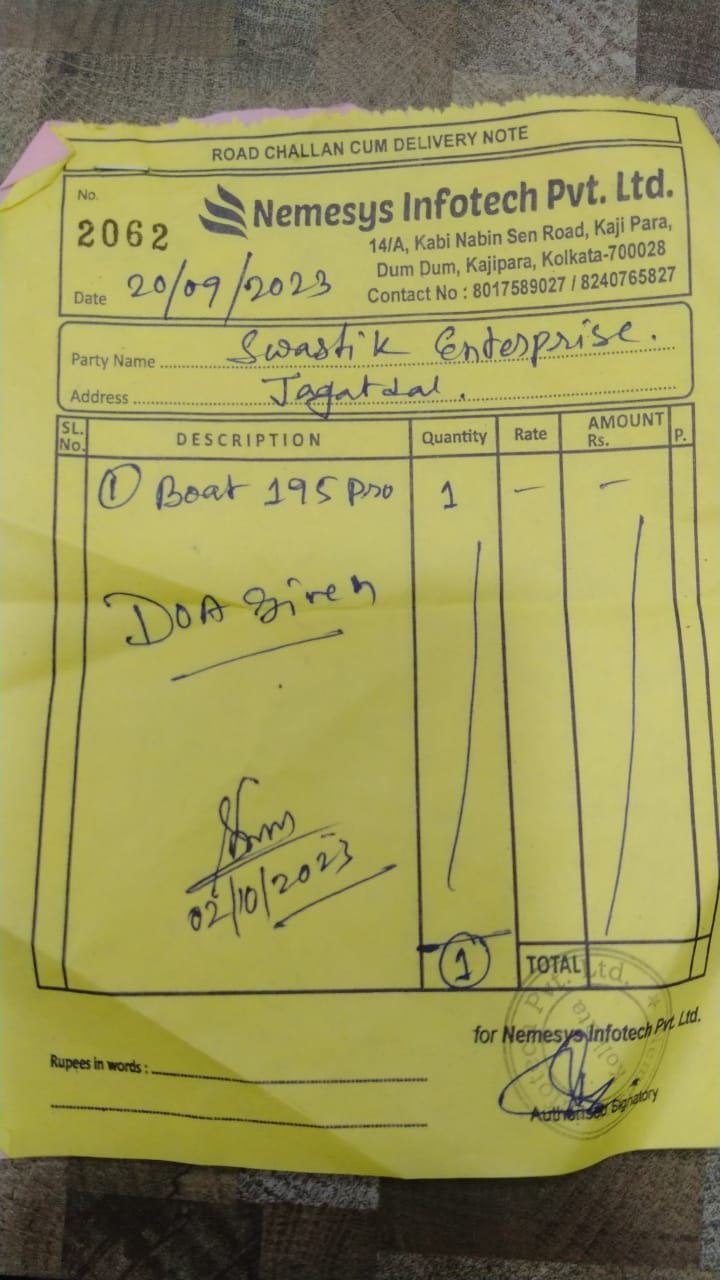 ROAD CHALLAN CUM DELIVERY NOTE
No.
2062
Nemesys Infotech Pvt. Ltd.
14/A, Kabi Nabin Sen Road, Kaji Para,
Dum Dum, Kajipara, Kolkata-700028
Contact No : 8017589027 / 8240765827
Date 20/09/2023
Party Name Swastik Enterprise.
Address Jagatdal.
SL. No. DESCRIPTION Quantity Rate AMOUNT Rs. P.
① Boat 195 Pro 1 — —
DOA Given
02/10/2023
1 TOTAL
for Nemesys Infotech Pvt. Ltd.
Rupees in words :
Authorised Signatory